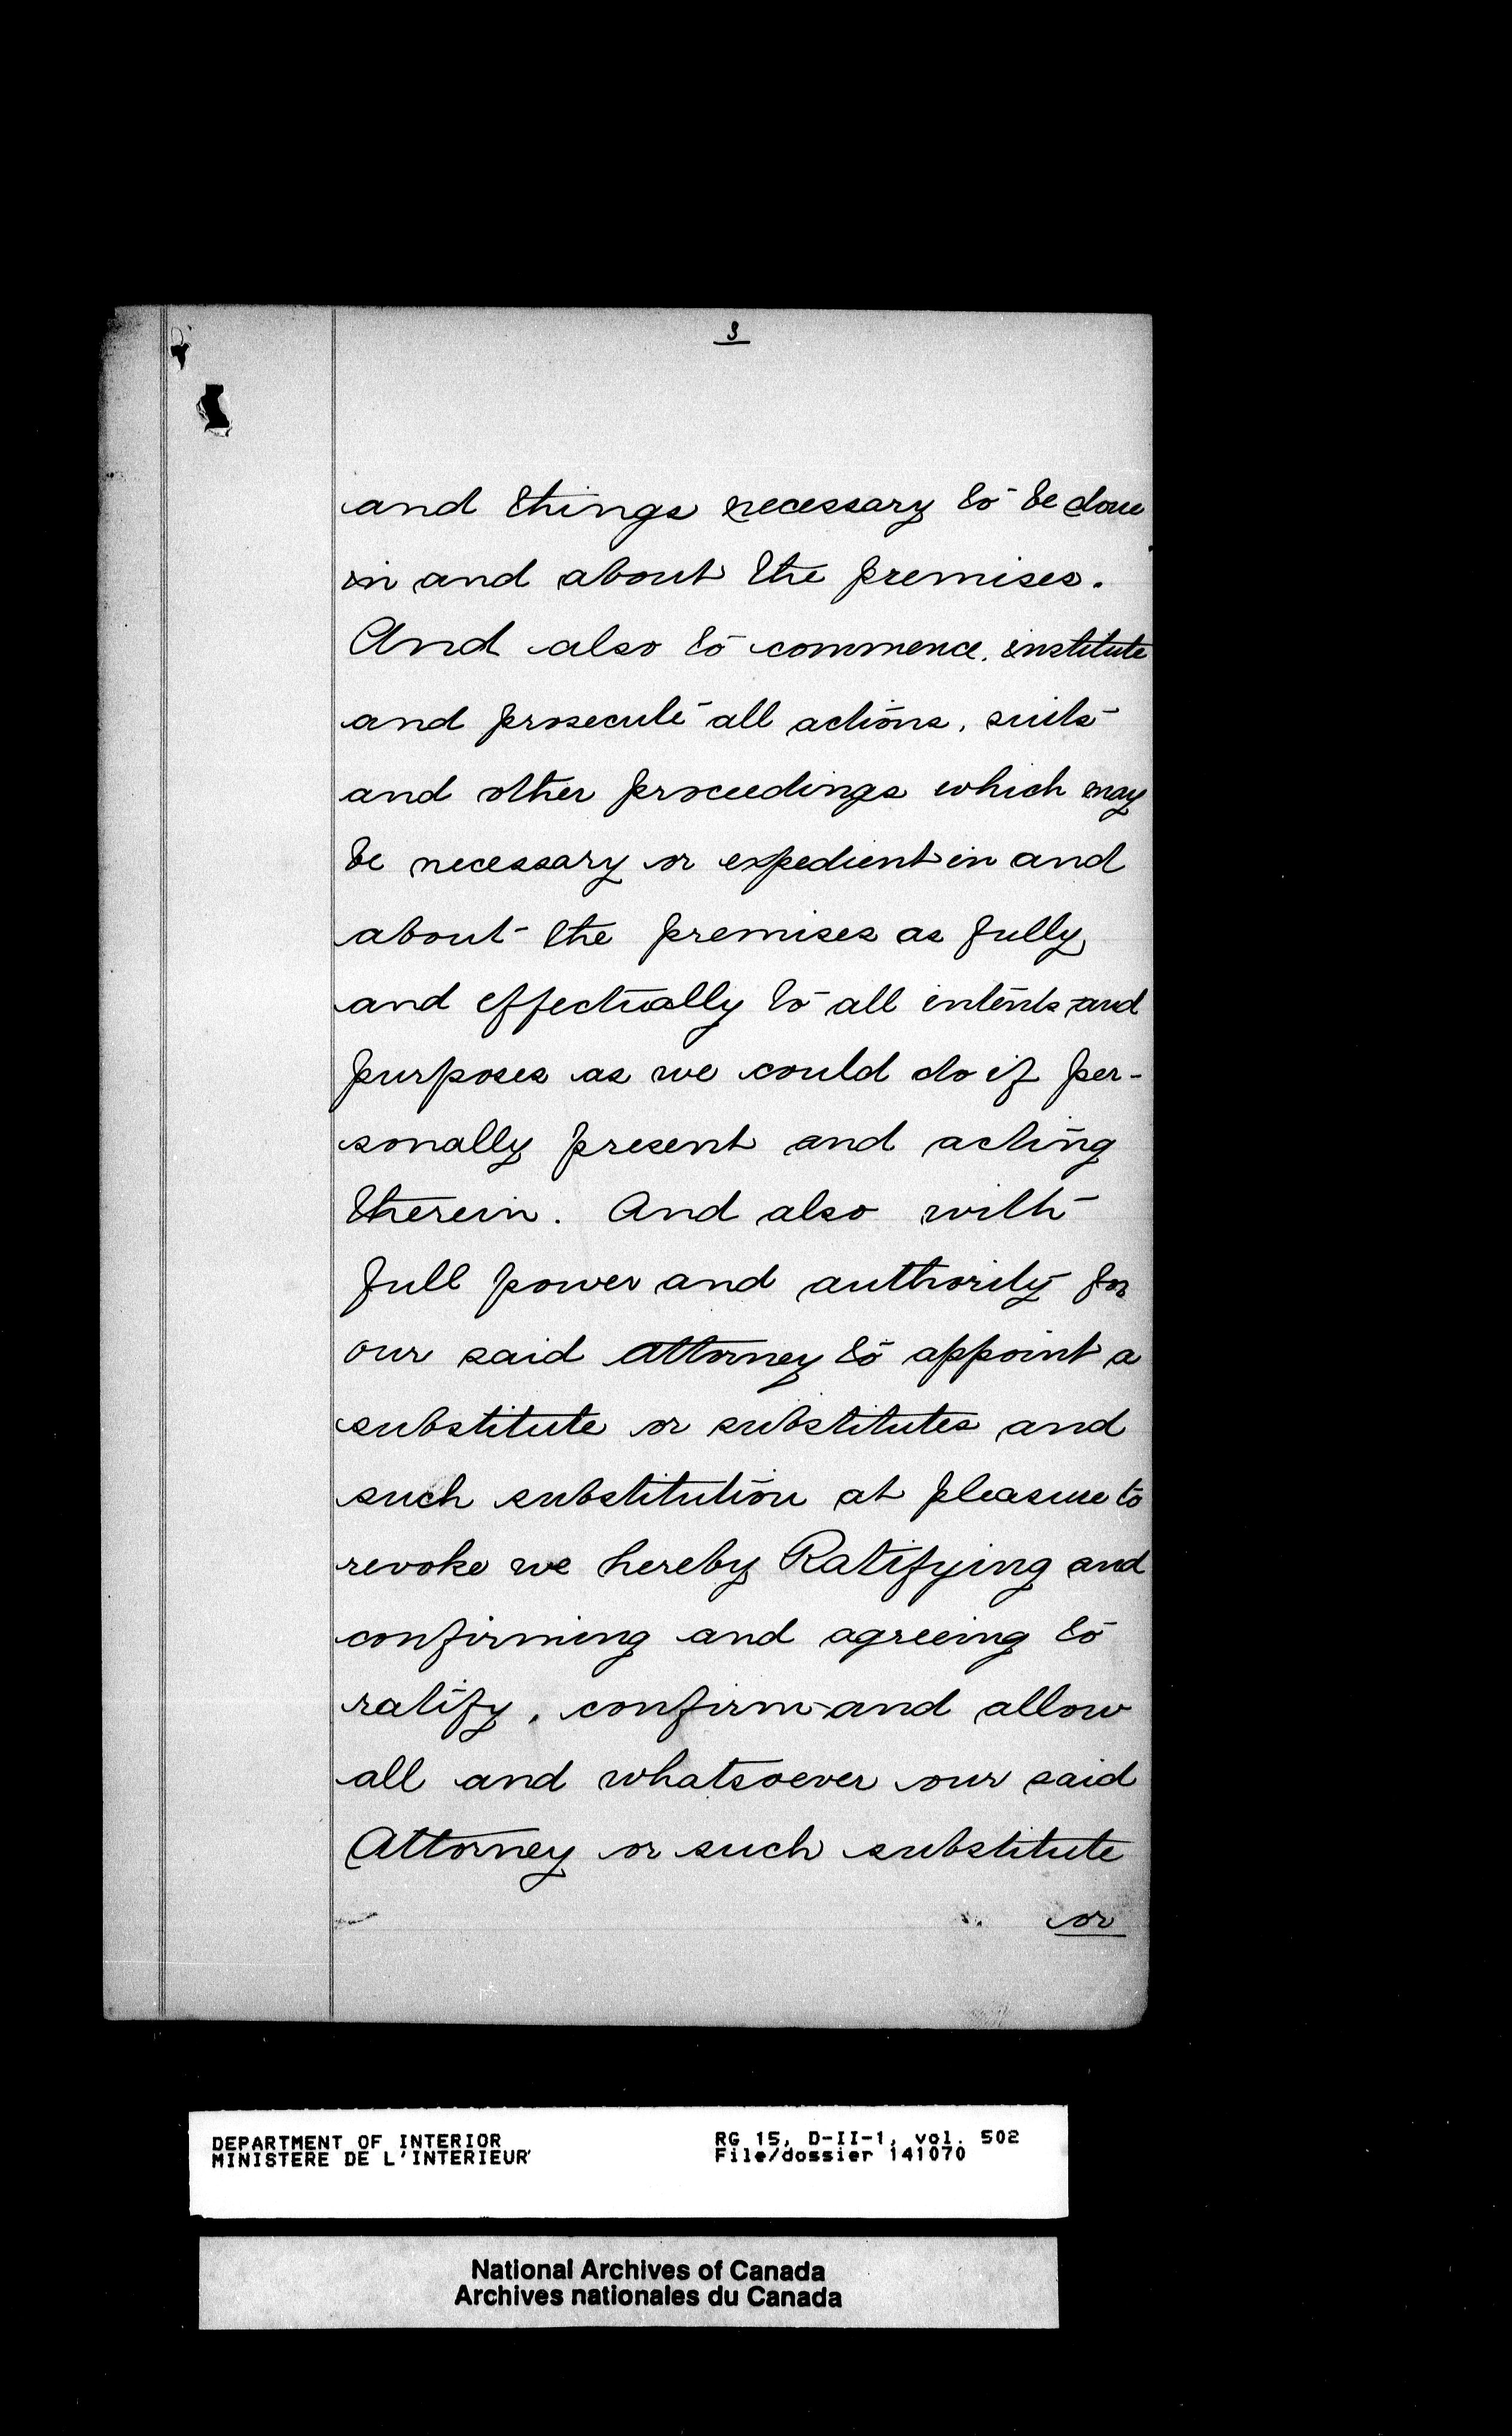 3
and things necessary to be done
in and about the premises.
And also to commence, institute
and prosecute all actions, suits
and other proceedings which may
be necessary or expedient in and
about the premises as fully
and effectually to all intents and
purposes as we could do if per-
sonally present and acting
therein. And also with
full power and authority for
our said Attorney to appoint a
substitute or substitutes and
such substitution at pleasure to
revoke we hereby Ratifying and
confirming and agreeing to
ratify, confirm and allow
all and whatsoever our said
Attorney or such substitute
or
DEPARTMENT OF INTERIOR RG 15, D-II-1, vol. 502
MINISTERE DE L'INTERIEUR File/dossier 141070
National Archives of Canada
Archives nationales du Canada